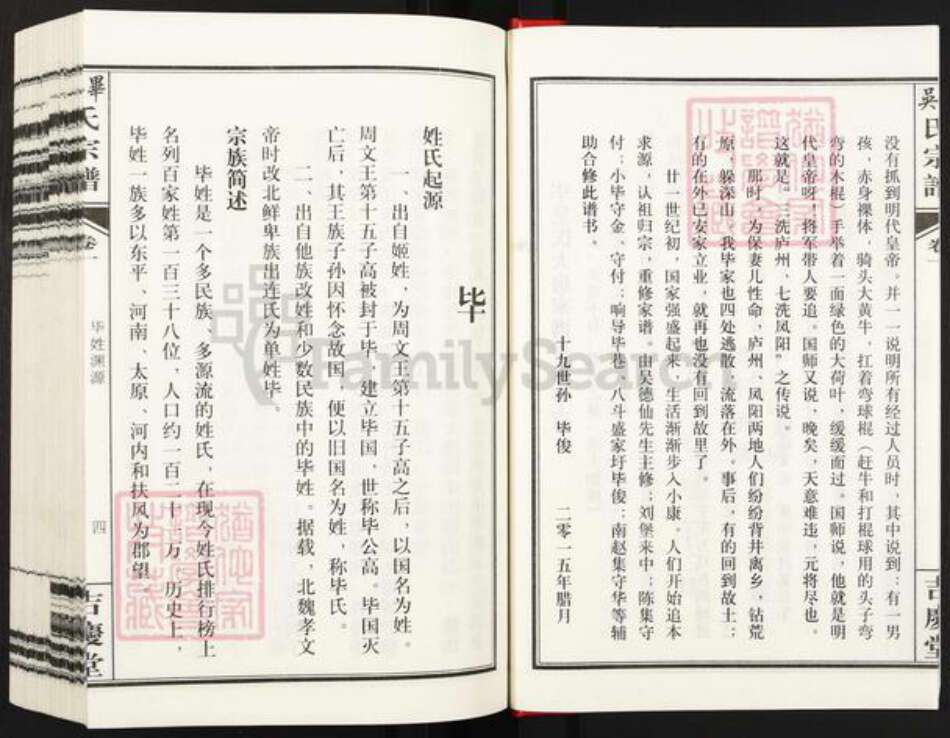 吳氏宗譜
卷一
吉慶堂
没有抓到明代皇帝。并一一说明所有经过人员时，其中说到：有一男
孩，赤身裸体，骑头大黄牛，扛着弯球棍（赶牛和打棍球用的头子弯
弯的木棍）手举着一面绿色的大荷叶，缓缓而过。国师说，他就是明
代皇帝呀！将军带人要追。国师又说，晚矣，天意难违，元将尽也。
这就是“三洗庐州，七洗凤阳”之传说。
那时，为保妻儿性命，庐州、凤阳两地人们纷纷背井离乡，钻荒
原，躲深山，我毕家也四处逃散，流落在外。事后，有的回到故土；
有的在外已安家立业，就再也没有回到故里了。
廿一世纪初，国家强盛起来，生活渐渐步入小康。人们开始追本
求源，认祖归宗，重修家谱。由吴德仙先生主修；刘堡来中；陈集守
付；小毕守金、守付；响导毕巷、八斗盛家圩毕俊；南赵集守华等辅
助合修此谱书。
十九世孙 毕俊 二零一五年腊月
毕
姓氏起源
一、出自姬姓，为周文王第十五子高之后，以国名为姓。
周文王第十五子高被封于毕，建立毕国，世称毕公高。毕国灭
亡后，其王族子孙因怀念故国，便以旧国名为姓，称毕氏。
二、出自他族改姓和少数民族中的毕姓。据载，北魏孝文
帝时改北鲜卑族出连氏为单姓毕。
宗族简述
毕姓是一个多民族、多源流的姓氏，在现今姓氏排行榜上
名列百家姓第一百三十八位，人口约一百二十一万，历史上，
毕姓一族多以东平、河南、太原、河内和扶风为郡望
畢氏宗譜
卷一
毕姓渊源
四
吉慶堂
FamilySearch